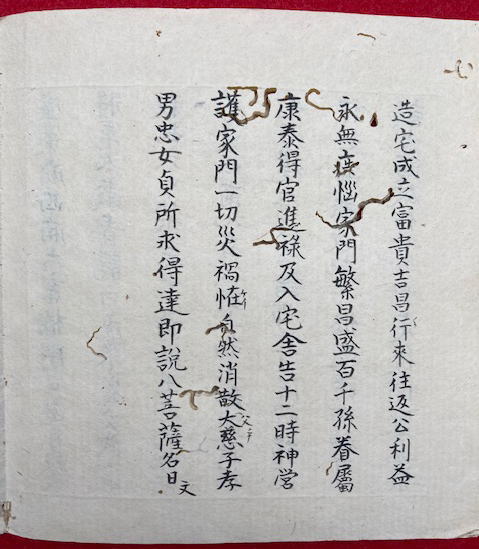 造宅成立富貴吉昌行來往返公利益
永無疾惱家門繁昌盛百千孫眷屬
康泰得官進祿及入宅舍告十二時神営
護家門一切災禍恠自然消散大慈子孝
男忠女貞所求得達即說八菩薩名曰文